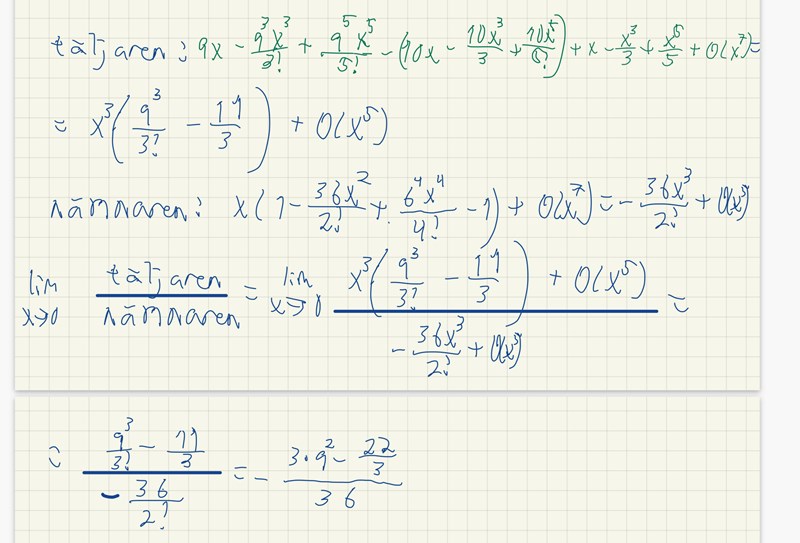 täljaren: 9x - 9³x³/3! + 9⁵x⁵/5! - (10x - 10x³/3 + 10x⁵/5!) + x - x³/3 + x⁵/5 + O(x⁷) =
= x³(9³/3! - 11/3) + O(x⁵)
nämnaren: x(1 - 36x²/2! + 6⁴x⁴/4! - 1) + O(x⁷) = - 36x³/2! + O(x⁵)
lim x→0 täljaren/nämnaren = lim x→0 (x³(9³/3! - 11/3) + O(x⁵))/(- 36x³/2! + O(x⁵)) =
= (9³/3! - 11/3)/(- 36/2!) = - (3·9² - 22/3)/36